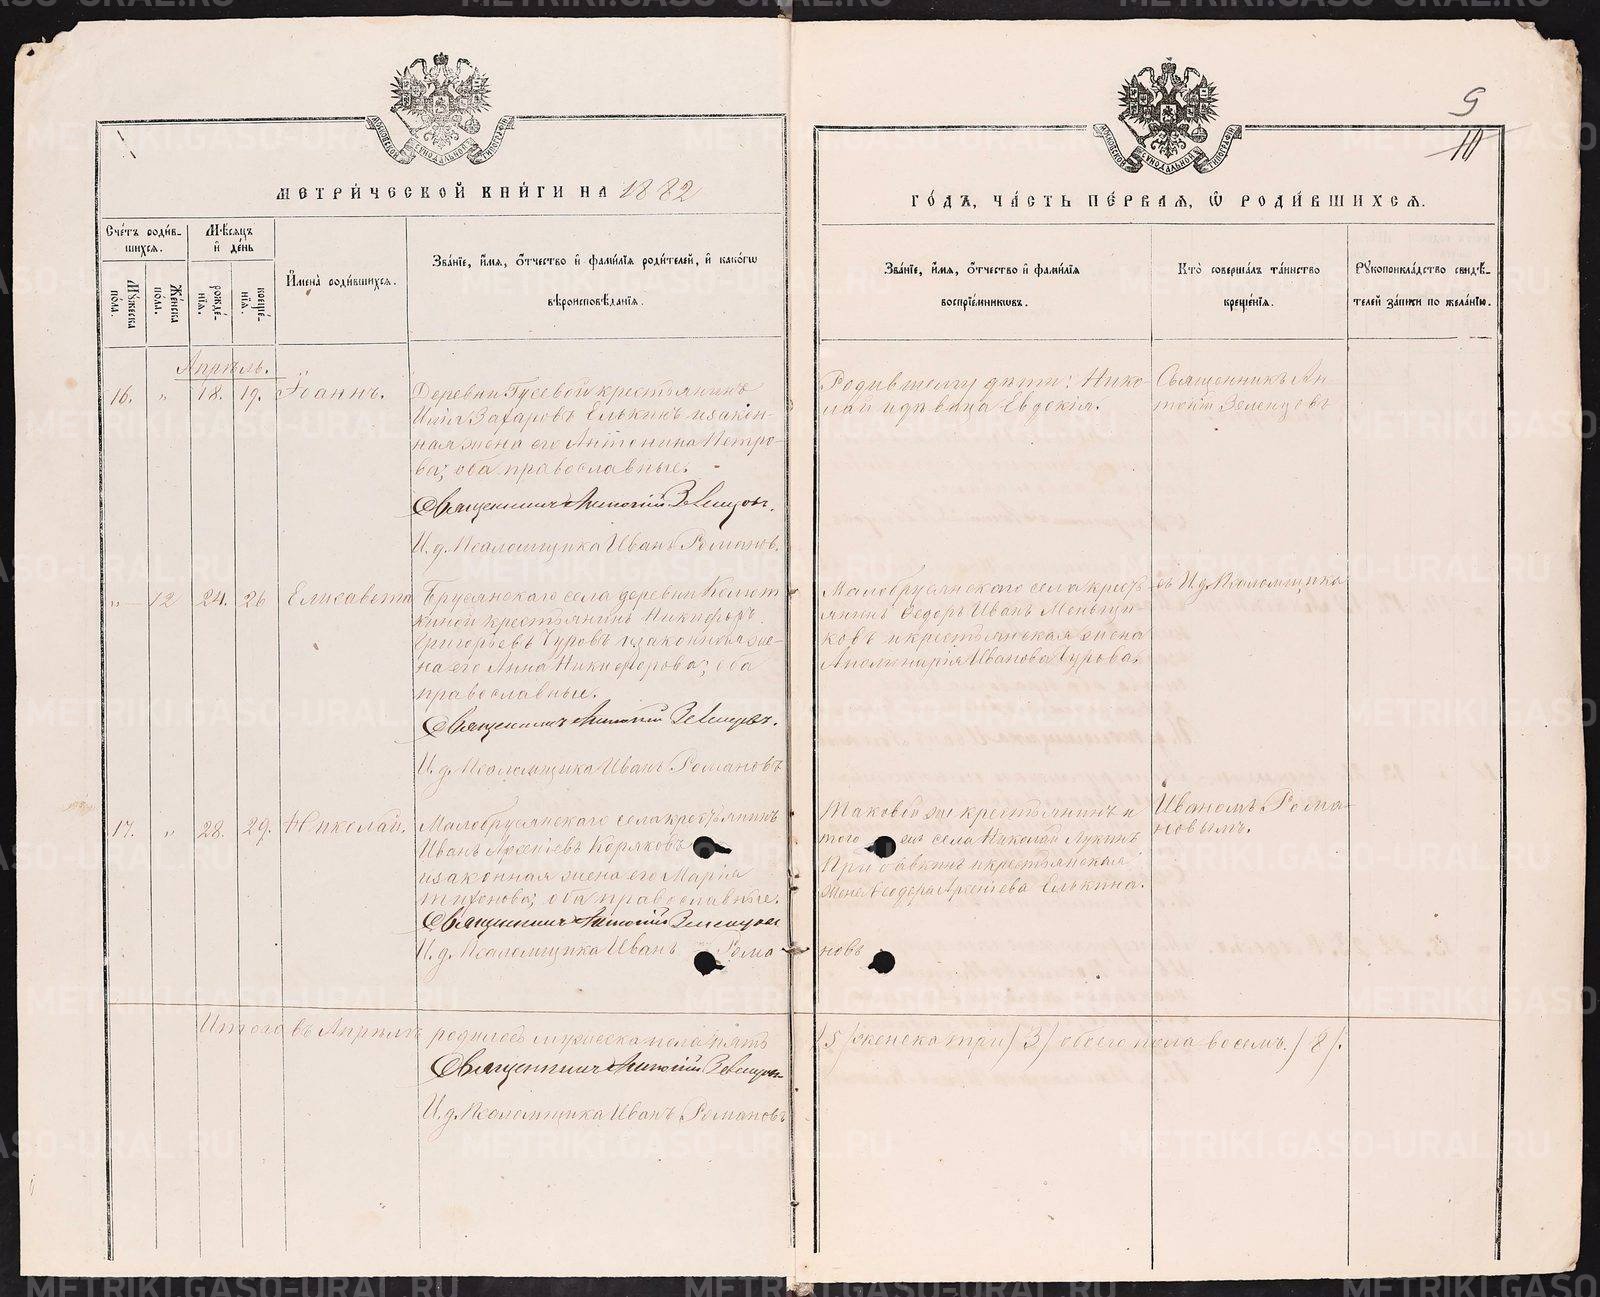 9
10
МЕТРИЧЕСКОЙ КНИГИ НА 1882
ГОДЪ, ЧАСТЬ ПЕРВАЯ, Ѡ РОДИВШИХСЯ.
Счетъ родив-
шихся.
Мужеска пола.
Женска пола.
Мѣсяцъ и день
рожде-нія.
креще-нія.
Имена родившихся.
Званіе, имя, отчество и фамилія родителей, и какогѡ
вѣроисповѣданія.
Званіе, имя, отчество и фамилія
воспріемниковъ.
Кто совершалъ таинство
крещенія.
Рукоприкладство свидѣ-
телей записи по желанію.
Апрѣль.
16. „ 18. 19. Іоаннъ.
Деревни Гусевой крестьянинъ
Илія Захаровъ Елькинъ и закон-
ная жена его Антонина Петро-
ва; оба православные.
Священникъ Антоній Зеленцовъ.
И. д. Псаломщика Иванъ Романов.
Родившемуся дяди: Нико-
лай и дѣвица Евдокія.
Священникъ Ан-
тоній Зеленцовъ
„ 12 24. 26 Елисавета
Брусянскаго села деревни Колют
киной крестьянинъ Никифоръ
Григорьевъ Чуровъ и законная же-
на его Анна Никифорова; оба
православные.
Священникъ Антоній Зеленцовъ.
И. д. Псаломщика Иванъ Романовъ
Малобрусянскаго села кресть
янинъ Ѳедоръ Иванъ Меньши
ковъ и крестьянская жена
Аполинарія Иванова Чурова.
съ И. д. Псаломщика
17. „ 28. 29. Николай.
Малобрусянскаго села крестьянинъ
Иванъ Арсеніевъ Коряковъ
и законная жена его Марія
Тихонова; оба православные.
Священникъ Антоній Зеленцовъ
И. д. Псаломщика Иванъ Рома
новъ
Таковой же крестьянинъ и
того же села Николай Лукинъ
Прибавкинъ и крестьянская
жена Ѳеодора Арсеніева Елькина.
Иваномъ Рома-
новымъ.
Итого въ Апрѣлѣ родилось мужеска пола пять
/5/ женска три /3/ обоего пола восемь. /8/.
Священникъ Антоній Зеленцовъ
И. д. Псаломщика Иванъ Романовъ
METRIKI.GASO-URAL.RU